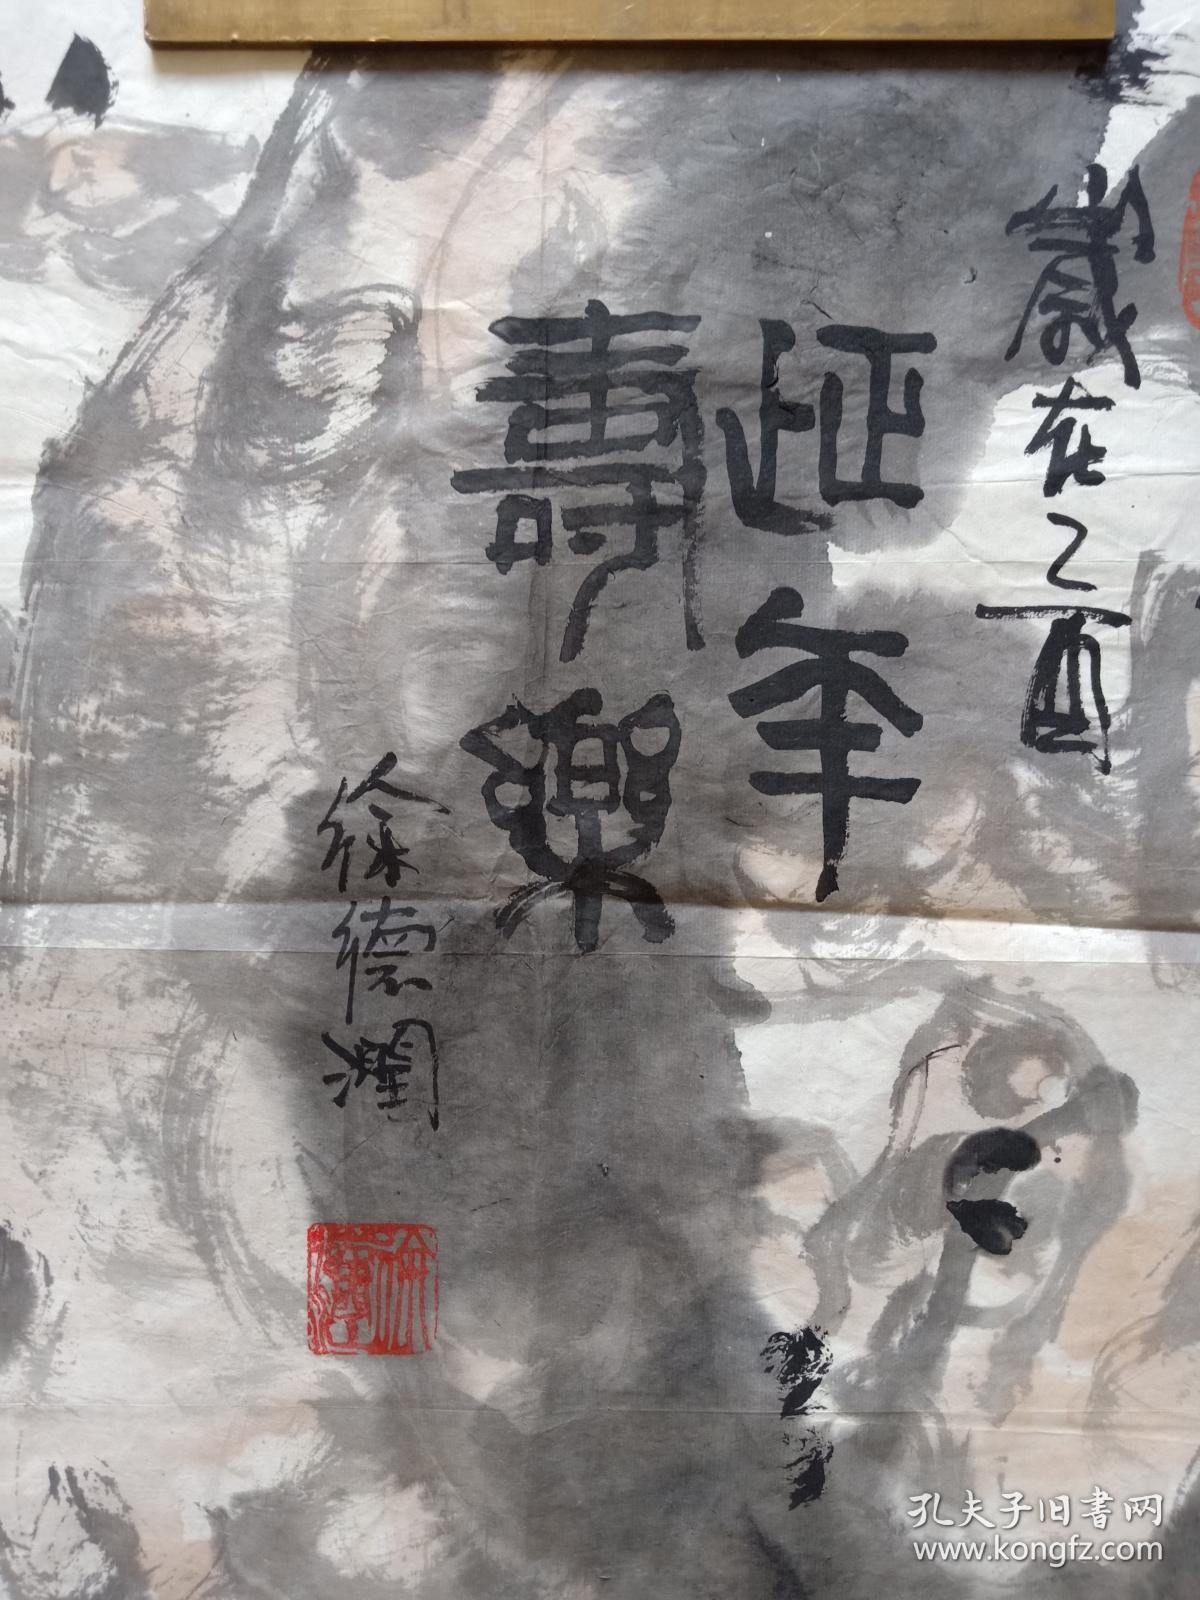 歲在乙酉
延年
壽樂
徐德潤
孔夫子旧书网
www.kongfz.com